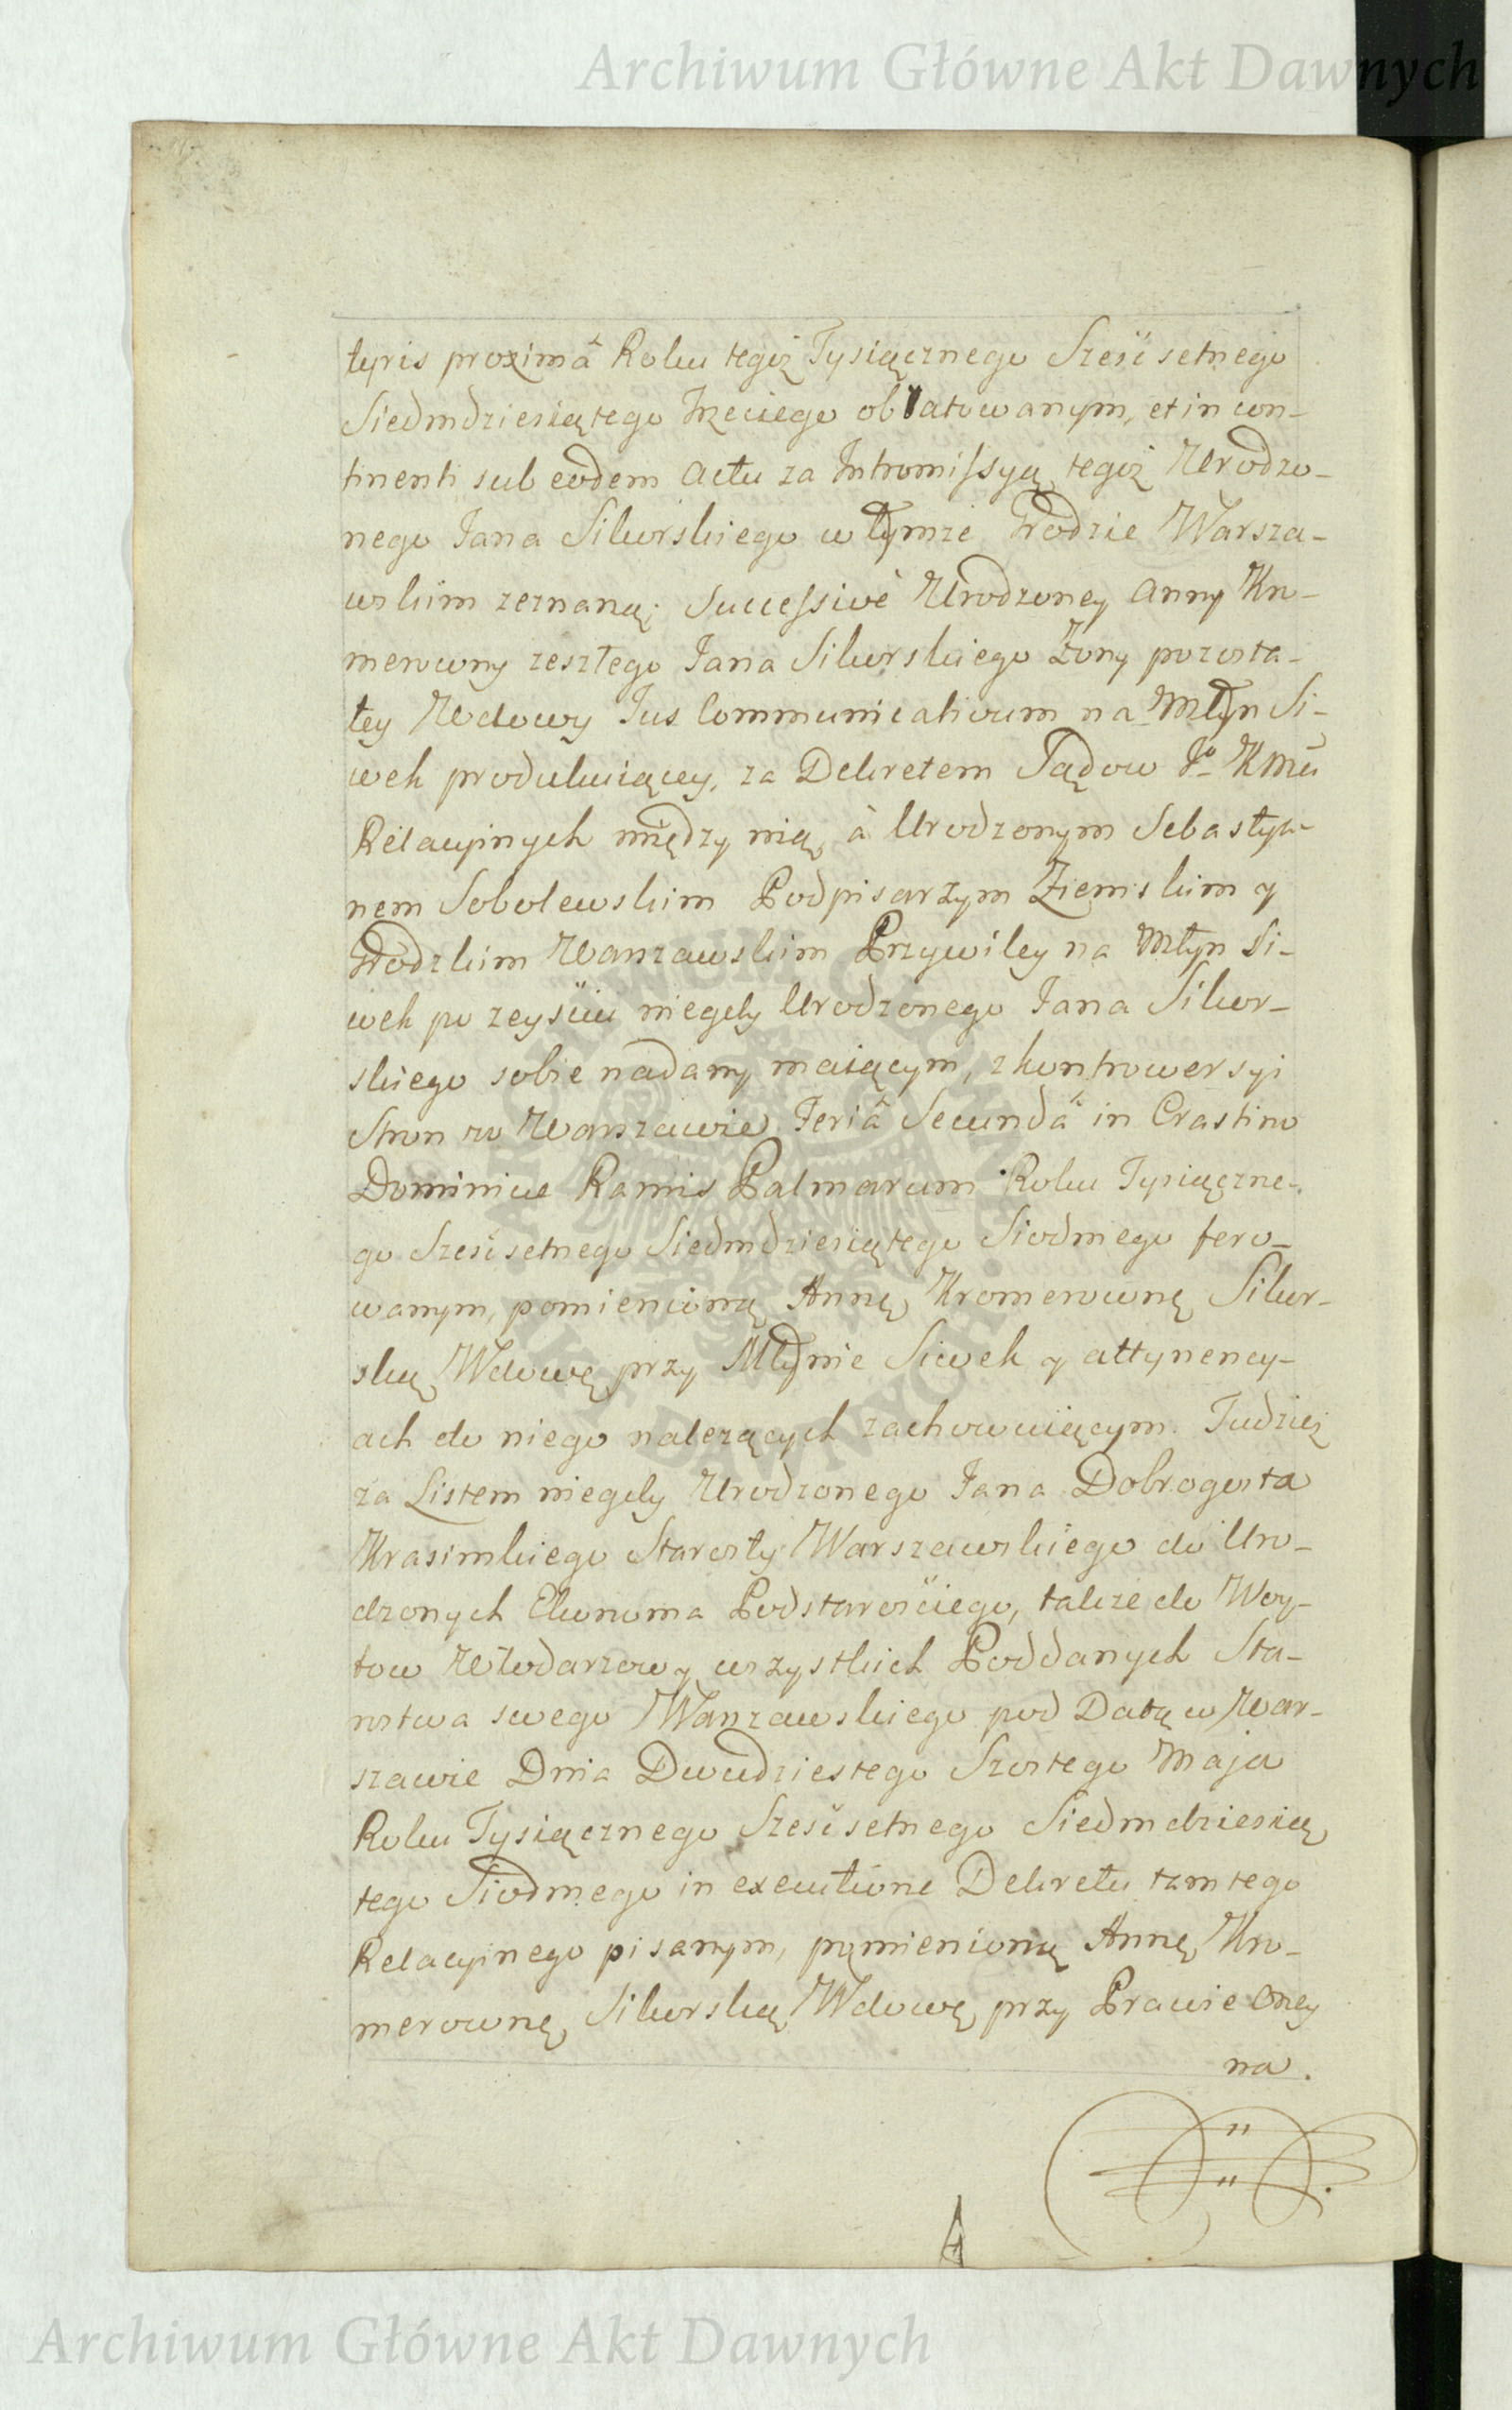 Archiwum Główne Akt Dawnych
typis proximâ Roku tegoż Tysiącznego Sześćsetnego
Siedmdziesiątego Trzeciego oblatowanym, et in con-
tinenti sub eodem Actu za Intromissyą tegoż Urodzo-
nego Jana Sikorskiego w tymże Grodzie Warsza-
wskim zeznaną; Successivè Urodzoney Anny Kro-
merowny zeszłego Jana Sikorskiego Żony pozosta-
łey Wdowy Jus Communicativum na Młyn Si-
wek produkuiącey, za Dekretem Sądow J.º K Mći
Relacyinych między nią, à Urodzonym Sebastya-
nem Sobolewskim Podpisarzym Ziemskim y
Grodzkim Warszawskim Przywiley na Młyn Si-
wek po zeyściu niegdy Urodzonego Jana Sikor-
skiego sobie nadany maiącym, z kontrowersyi
Stron w Warszawie Feriâ Secundâ in Crastino
Dominicæ Ramis Palmarum Roku Tysiączne-
go Sześćsetnego Siedmdziesiątego Siodmego fero-
wanym, pomienioną Annę Kromerownę Sikor-
ską Wdowę przy Młynie Siwek y attynency-
ach do niego należących zachowuiącym. Tudzież
za Listem niegdy Urodzonego Jana Dobrogosta
Krasinskiego Starosty Warszawskiego do Uro-
dzonych Ekonoma Podstarościego, także do Woy-
tow Włodarzow y wszystkich Poddanych Sta-
rostwa swego Warszawskiego pod Datą w War-
szawie Dnia Dwudziestego Szostego Maja
Roku Tysiącznego Sześćsetnego Siedmdziesią
tego Siodmego in executione Dekretu tamtego
Relacyinego pisanym, pomienioną Annę Kro-
merownę Sikorską Wdowę przy Prawie Oney
na.
ARCHIWUM GŁÓWNE AKT DAWNYCH
Archiwum Główne Akt Dawnych